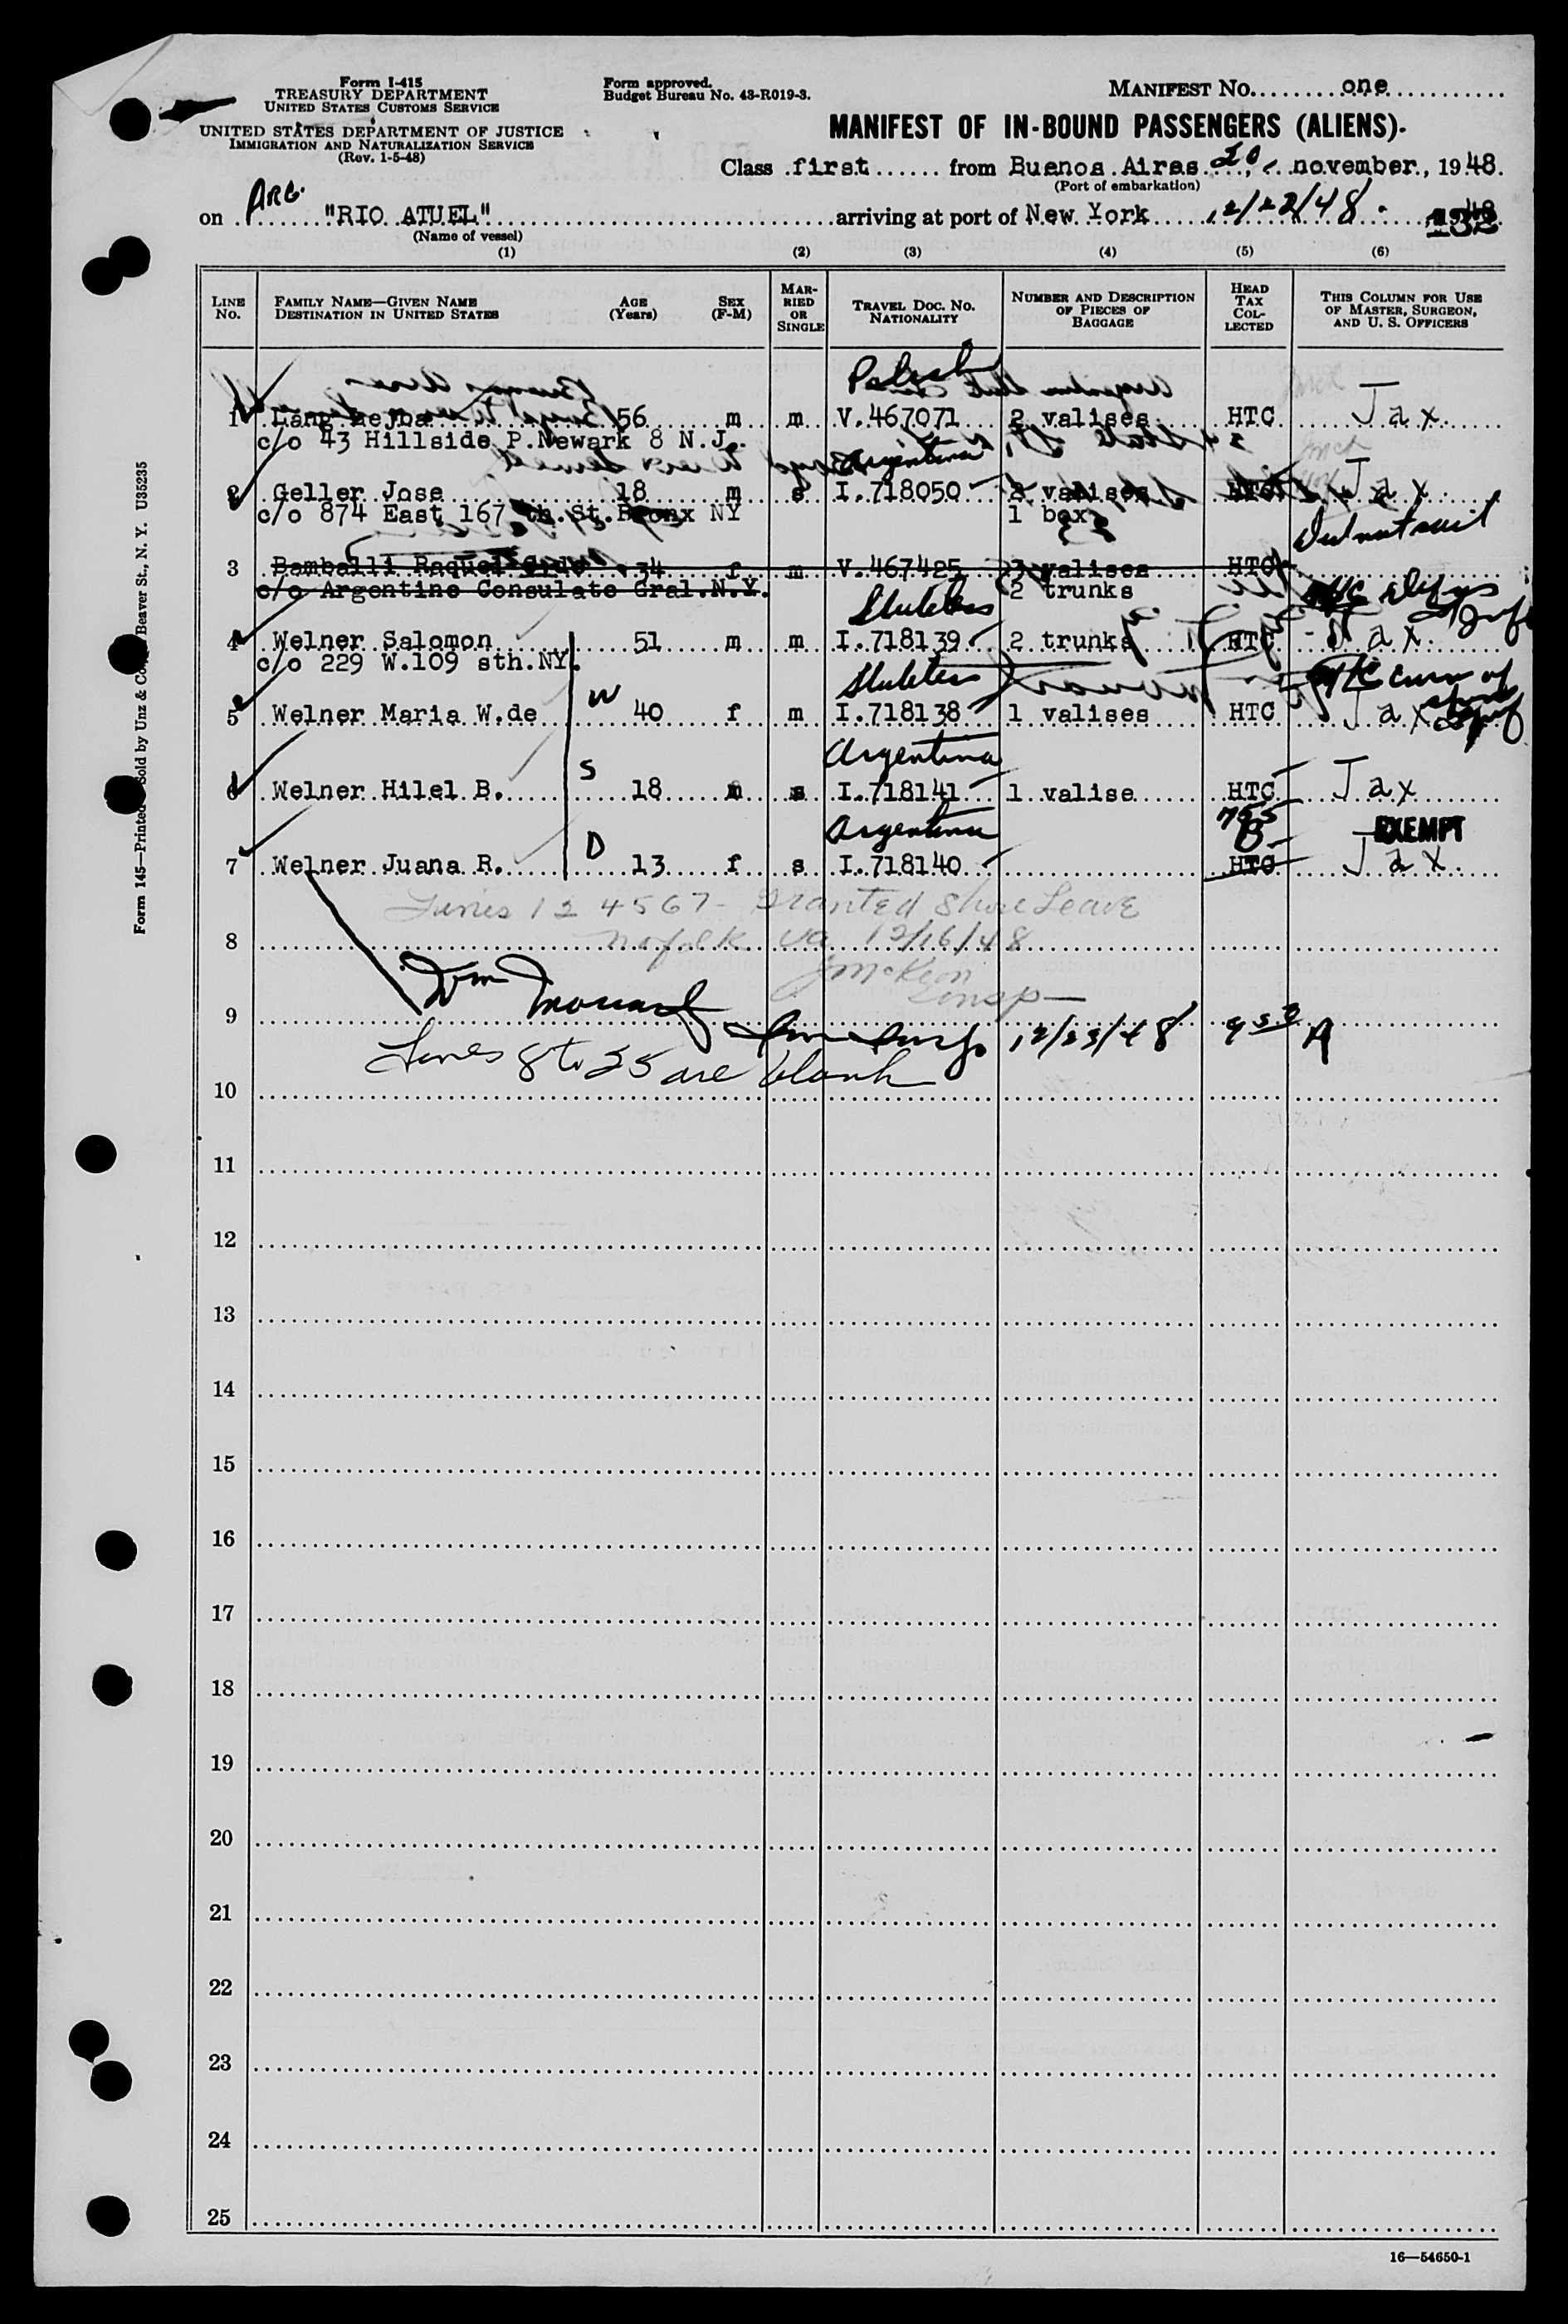 Form I-415
TREASURY DEPARTMENT
UNITED STATES CUSTOMS SERVICE
UNITED STATES DEPARTMENT OF JUSTICE
IMMIGRATION AND NATURALIZATION SERVICE
(Rev. 1-5-48)
Form approved.
Budget Bureau No. 43-R019-3.
MANIFEST NO. one
MANIFEST OF IN-BOUND PASSENGERS (ALIENS)
Class first from Buenos Aires, november, 1948.
(Port of embarkation)
on Arg. "RIO ATUEL" arriving at port of New York 12/22/48. 132
(Name of vessel)
(1) (2) (3) (4) (5) (6)
LINE NO.
FAMILY NAME—GIVEN NAME
DESTINATION IN UNITED STATES
AGE (Years)
SEX (F-M)
MARRIED OR SINGLE
TRAVEL DOC. NO.
NATIONALITY
NUMBER AND DESCRIPTION OF PIECES OF BAGGAGE
HEAD TAX COLLECTED
THIS COLUMN FOR USE OF MASTER, SURGEON, AND U. S. OFFICERS
Polish
1 Lang 56 m m V.467071 2 valises HTC Jax
c/o 43 Hillside P.Newark 8 N.J.
Argentina
2 Geller Jose 18 m s I.718050 2 valises HTC Jax
c/o 874 East 167 th.St.Bronx NY 1 box
Did not sail
3 Bamballi Raquel 34 f m V.467425 valises HTC
c/o Argentine Consulate Gral.N.Y. 2 trunks
Stateless
4 Welner Salomon 51 m m I.718139 2 trunks HTC Jax
c/o 229 W.109 sth.NY.
Stateless
5 Welner Maria W.de W 40 f m I.718138 1 valises HTC Jax
Argentina
6 Welner Hilel B. S 18 m s I.718141 1 valise HTC Jax
Argentina EXEMPT
7 Welner Juana R. D 13 f s I.718140 HTC Jax
Lines 1 2 4 5 6 7 - Granted Shore Leave
8 Norfolk Va 12/16/48
J McKeon
Insp
9 12/23/48 9 A
Lines 8 to 25 are blank
10
11
12
13
14
15
16
17
18
19
20
21
22
23
24
25
16—54650-1
Form 145—Printed Sold by Unz & Co. Beaver St., N. Y. U35235